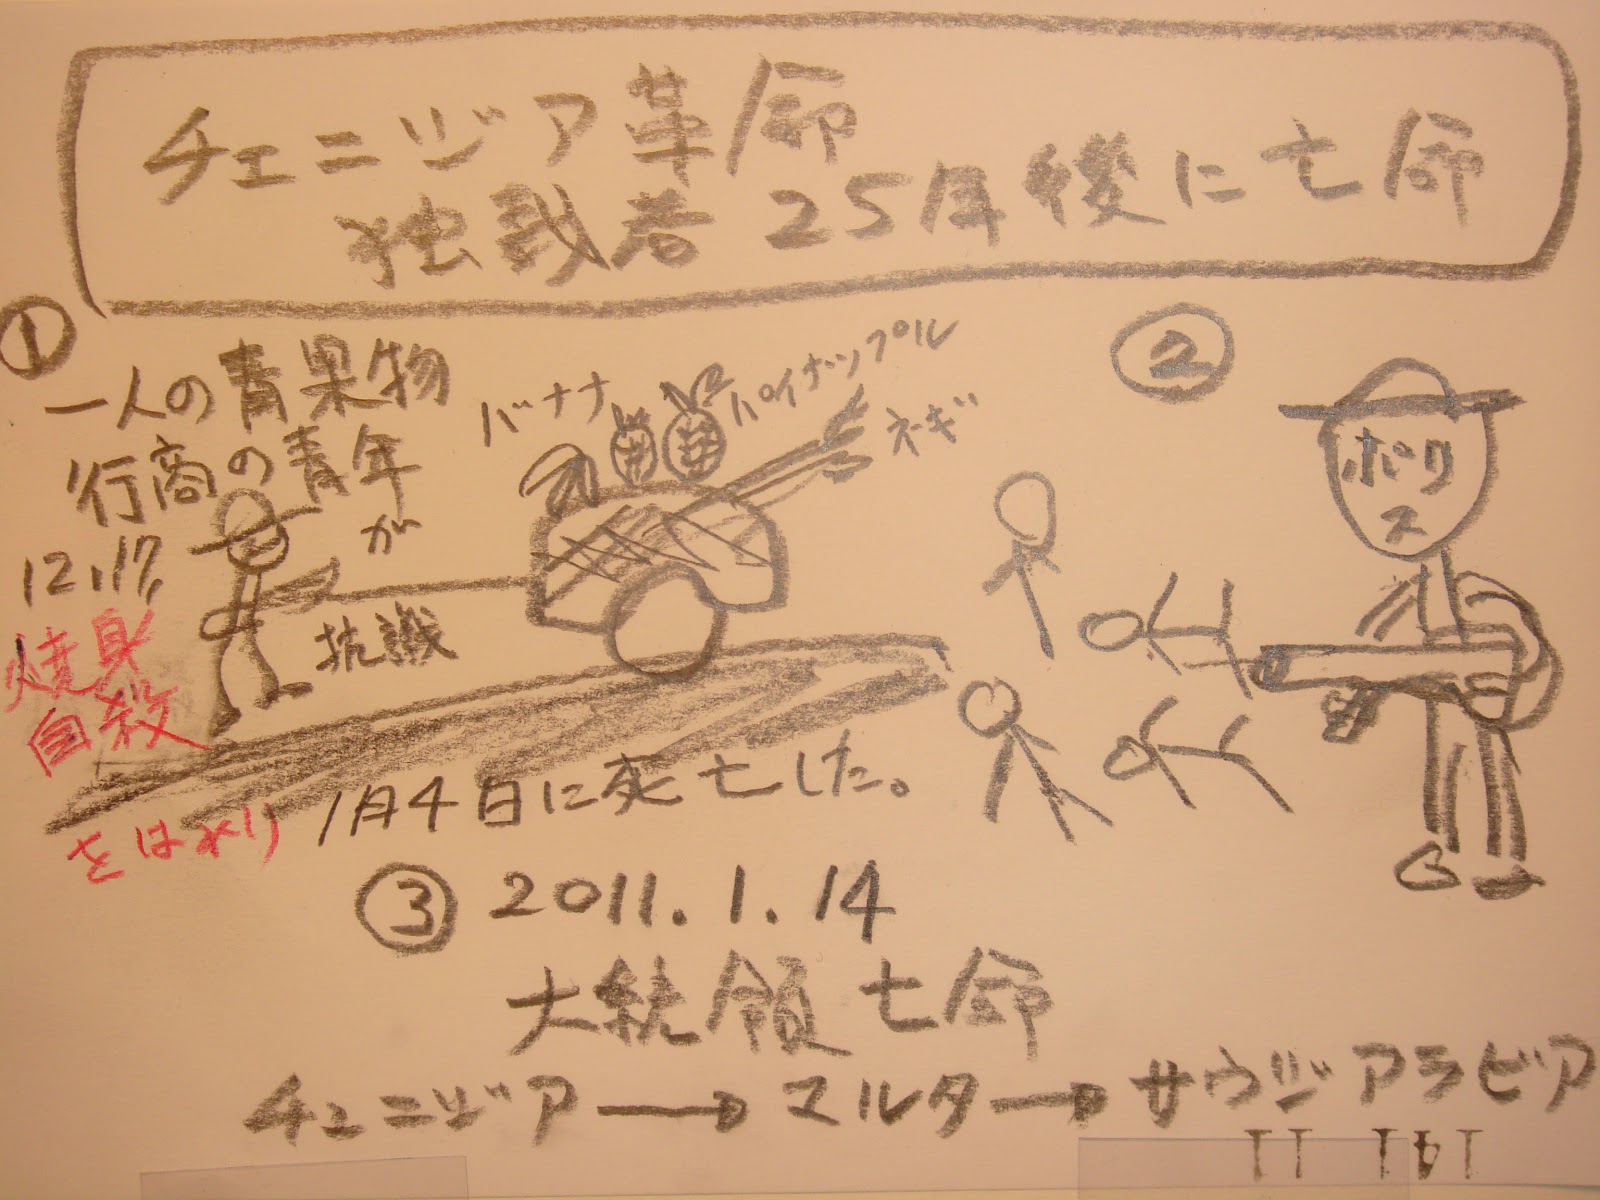 チェニジア革命
独裁者 25年後に亡命
①
一人の青果物
行商の青年
が
12.17,
焼身
自殺
をはかり
抗議
バナナ
パイナップル
ネギ
1月4日に死亡した。
②
ポリ
ス
③ 2011.1.14
大統領亡命
チュニジア→マルタ→サウジアラビア